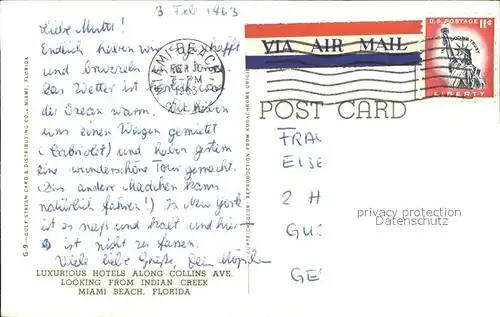 3 Feb 1963
Liebe Mutti!
Endlich haben wir es geschafft
und brutzeln
das Wetter ist herrlich und
der Ozean warm. Wir haben
uns einen Wagen gemietet
(Cabriolet) und haben gestern
eine wunderschöne Tour gemacht.
(Das andere Mädchen kann
natürlich fahren!) In New York
ist es naß und kalt und hier
ist es nicht zu fassen.
Viele liebe Grüße, Dein
LUXURIOUS HOTELS ALONG COLLINS AVE.
LOOKING FROM INDIAN CREEK
MIAMI BEACH, FLORIDA
G-9—GULF STREAM CARD & DISTRIBUTING CO., MIAMI, FLORIDA
MIAMI BEACH
FEB
7-PM
1963
VIA AIR MAIL
U.S. POSTAGE 11¢
IN GOD WE TRUST
LIBERTY
POST CARD
FRAU
EISE
2 H
GUS
GE
privacy protection
Datenschutz